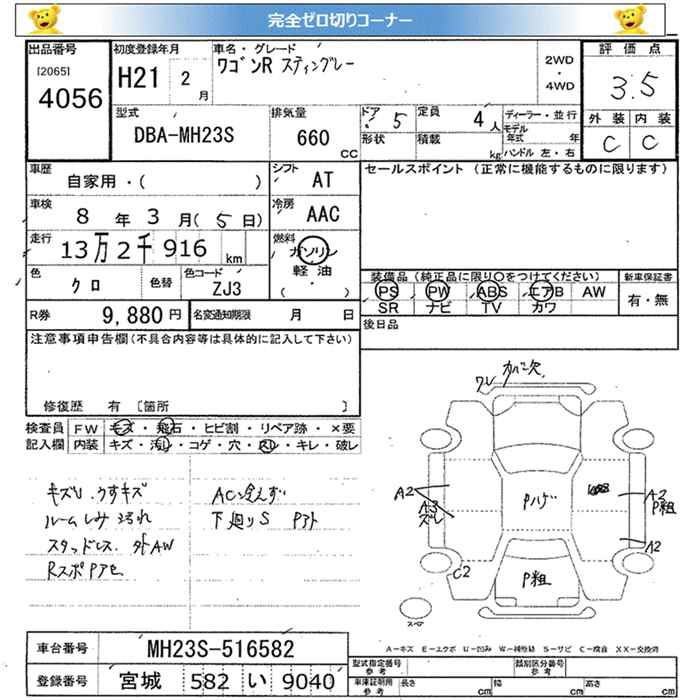 完全ゼロ切りコーナー
出品番号 [2065] 4056
初度登録年月 H21 2月
車名・グレード ワゴンR スティングレー
2WD・4WD
評価点 3.5
外装 C 内装 C
型式 DBA-MH23S
排気量 660 CC
ドア 5 形状
定員 4人 積載 kg
ディーラー・並行
モデル年式 年
ハンドル 左・右
車歴 自家用・( )
シフト AT
セールスポイント (正常に機能するものに限ります)
車検 8年3月(5日)
冷房 AAC
走行 13万2千916 km
燃料 ガソリン 軽油 (・)
色 クロ 色替
色コード ZJ3
装備品(純正品に限り○をつけてください)
PS PW ABS エアB AW
SR ナビ TV カワ
新車保証書 有・無
R券 9,880円
名変通知期限 月 日
後日品
注意事項申告欄(不具合内容等は具体的に記入して下さい)
修復歴 有 [箇所 ]
検査員記入欄
FW キズ・飛石・ヒビ割・リペア跡・×要
内装 キズ・汚れ・コゲ・穴・スリ・キレ・破レ
キズU、うすキズ
ルームしみ 汚れ
スタッドレス、外AW
RスポPアセ
AC冷えず
下廻りS Pアト
ワレ カバー欠
A2
A3
ズレ
C2
Pハゲ
P粗
A3
P粗
A2
A=キズ E=エクボ U=凹み W=補修跡 S=サビ C=腐食 XX=交換済
車台番号 MH23S-516582
登録番号 宮城 582 い 9040
型式指定番号 参考
類別区分番号 参考
車庫証明用 参考 長さ cm 幅 cm 高さ cm